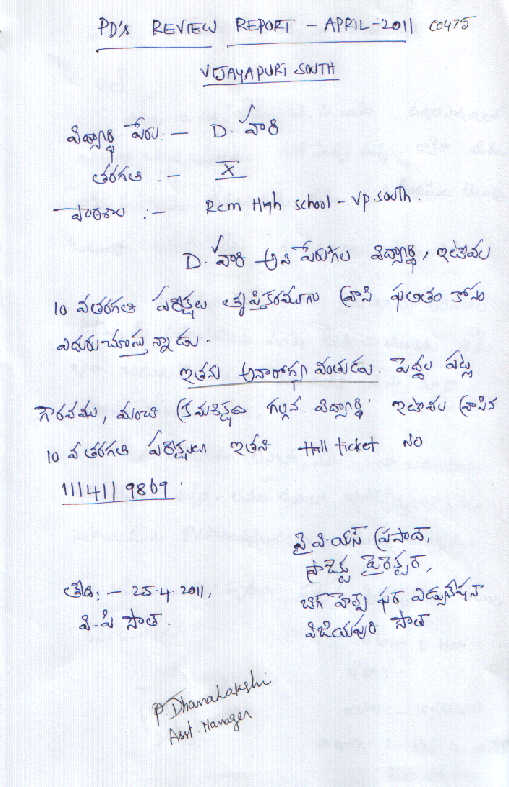 PD's REVIEW REPORT - APRIL-2011 C0475
VIJAYAPURI SOUTH
విద్యార్థి పేరు :- D. హరి
తరగతి :- X
పాఠశాల :- Rcm High school - VP. South.
D. హరి అని పేరుగల విద్యార్థి, ఇటీవల
10 వతరగతి పరీక్షలు తృప్తికరముగా వ్రాసి ఫలితం కోసం
ఎదురుచూస్తున్నాడు.
ఇతను అనారోగ్య వంతుడు. పెద్దల పట్ల
గౌరవము, మంచి క్రమశిక్షణ గల్గిన విద్యార్థి ఇటీవల వ్రాసిన
10 వ తరగతి పరీక్షలు ఇతని Hall ticket No
1114119869.
వై.వి.యస్ ప్రసాద్,
ప్రాజెక్టు డైరెక్టర్,
తేది :- 25.4.2011, బిగ్ హెల్ప్ ఫర్ ఎడ్యుకేషన్
వి.పి సౌత్. విజయపురి సౌత్
P Dhanalakshi
Asst. Manager